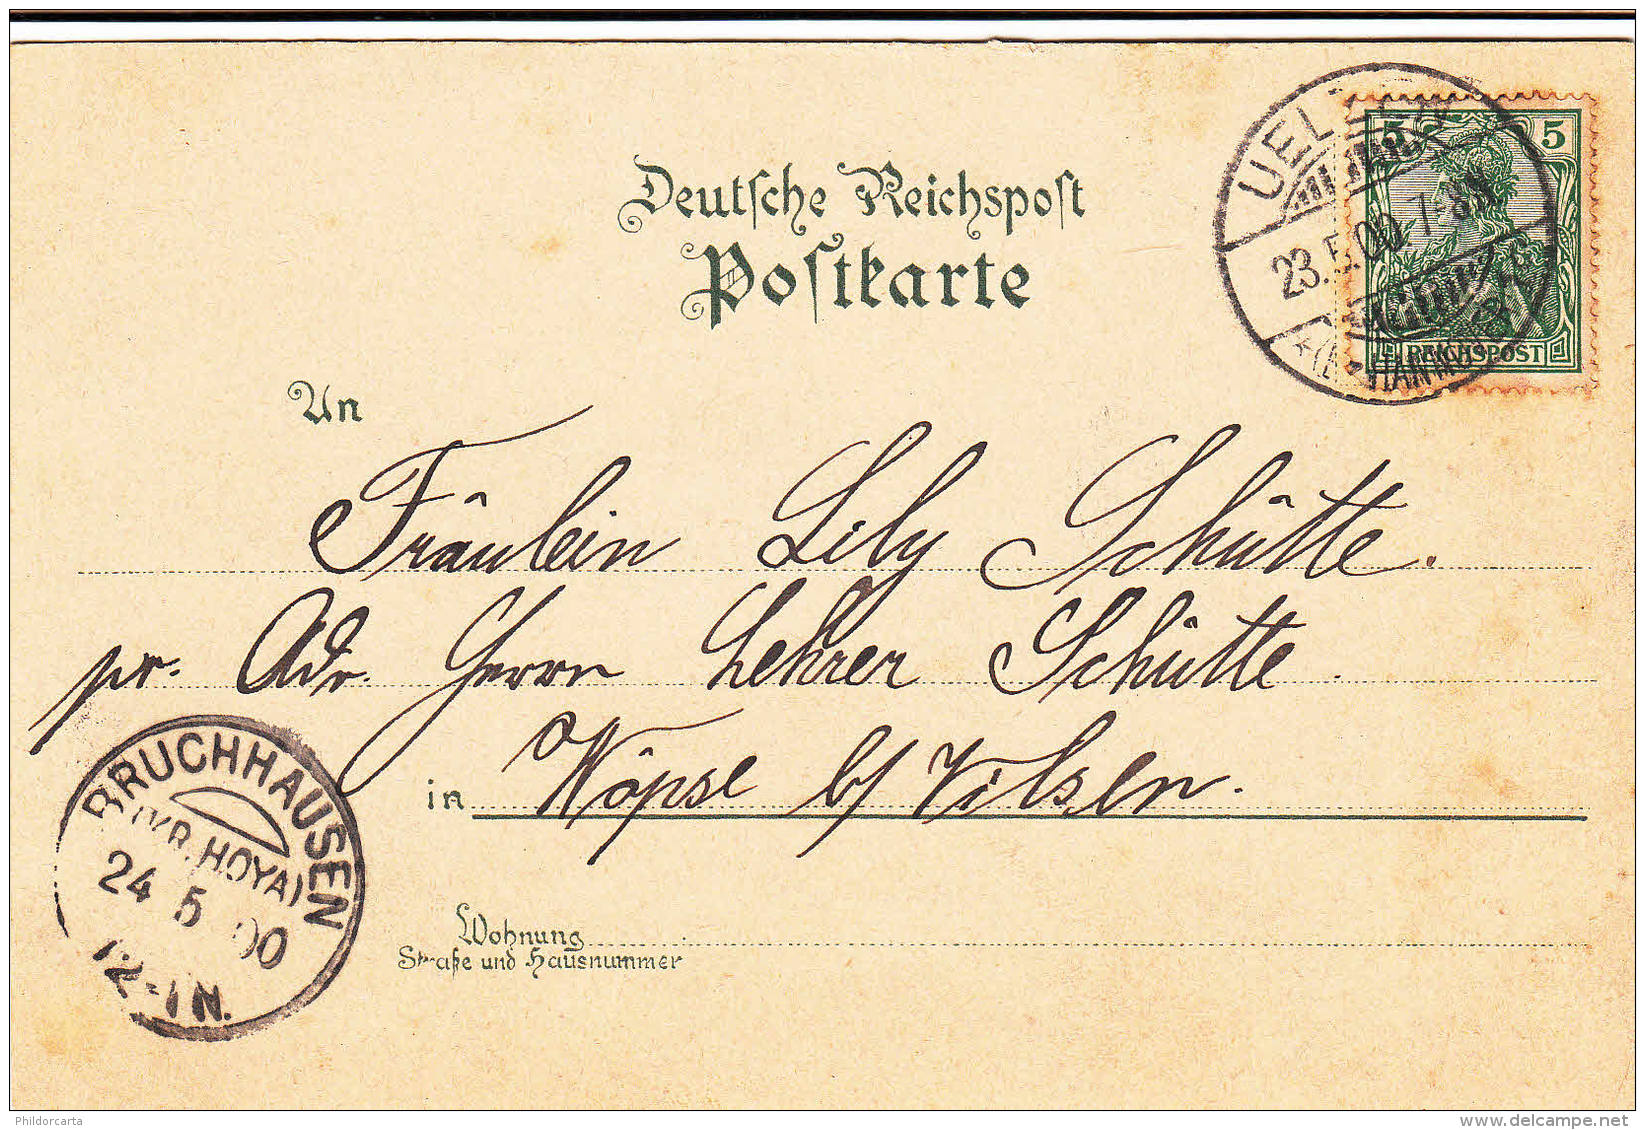 Deutsche Reichspost
Postkarte
5 5
REICHSPOST
UEL
23.5.00 7-8N.
HANNOVER
An
Fräulein Lily Schütte.
pr. Adr. Herrn Lehrer Schütte
in Wöpse b/ Vilsen.
BRUCHHAUSEN
(KR. HOYA)
24 5 00
12-1N.
Wohnung
Straße und Hausnummer
Phildorcarta
delcampe.net